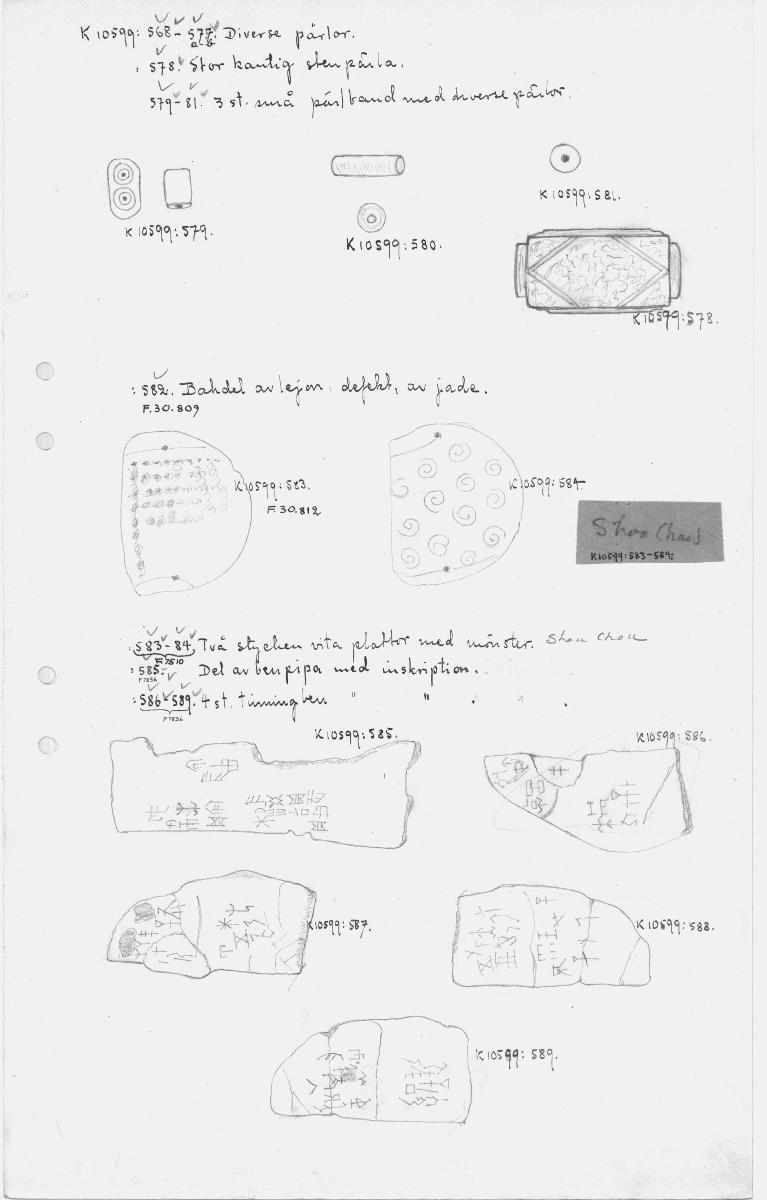 K 10599: 568 - 577. Diverse pärlor.
a-b
: 578. Stor kantig stenpärla.
579-81. 3 st. små pärlband med diverse pärlor.
K 10599:579.
K 10599:580.
K 10599:581.
K 10599:578.
: 582. Bakdel av lejon, defekt, av jade.
F.30.809
K 10599:583.
F.30.812
K 10599:584.
Shou Chou
K 10599:583-584.
: 583-84. Två stycken vita plattor med mönster. Shou Chou
F.7510
: 585. Del av benpipa med inskription.
F7836
: 586-589. 4 st. tinningben " " . " .
F7836
K 10599:585.
K 10599:586.
K 10599:587.
K 10599:588.
K 10599:589.